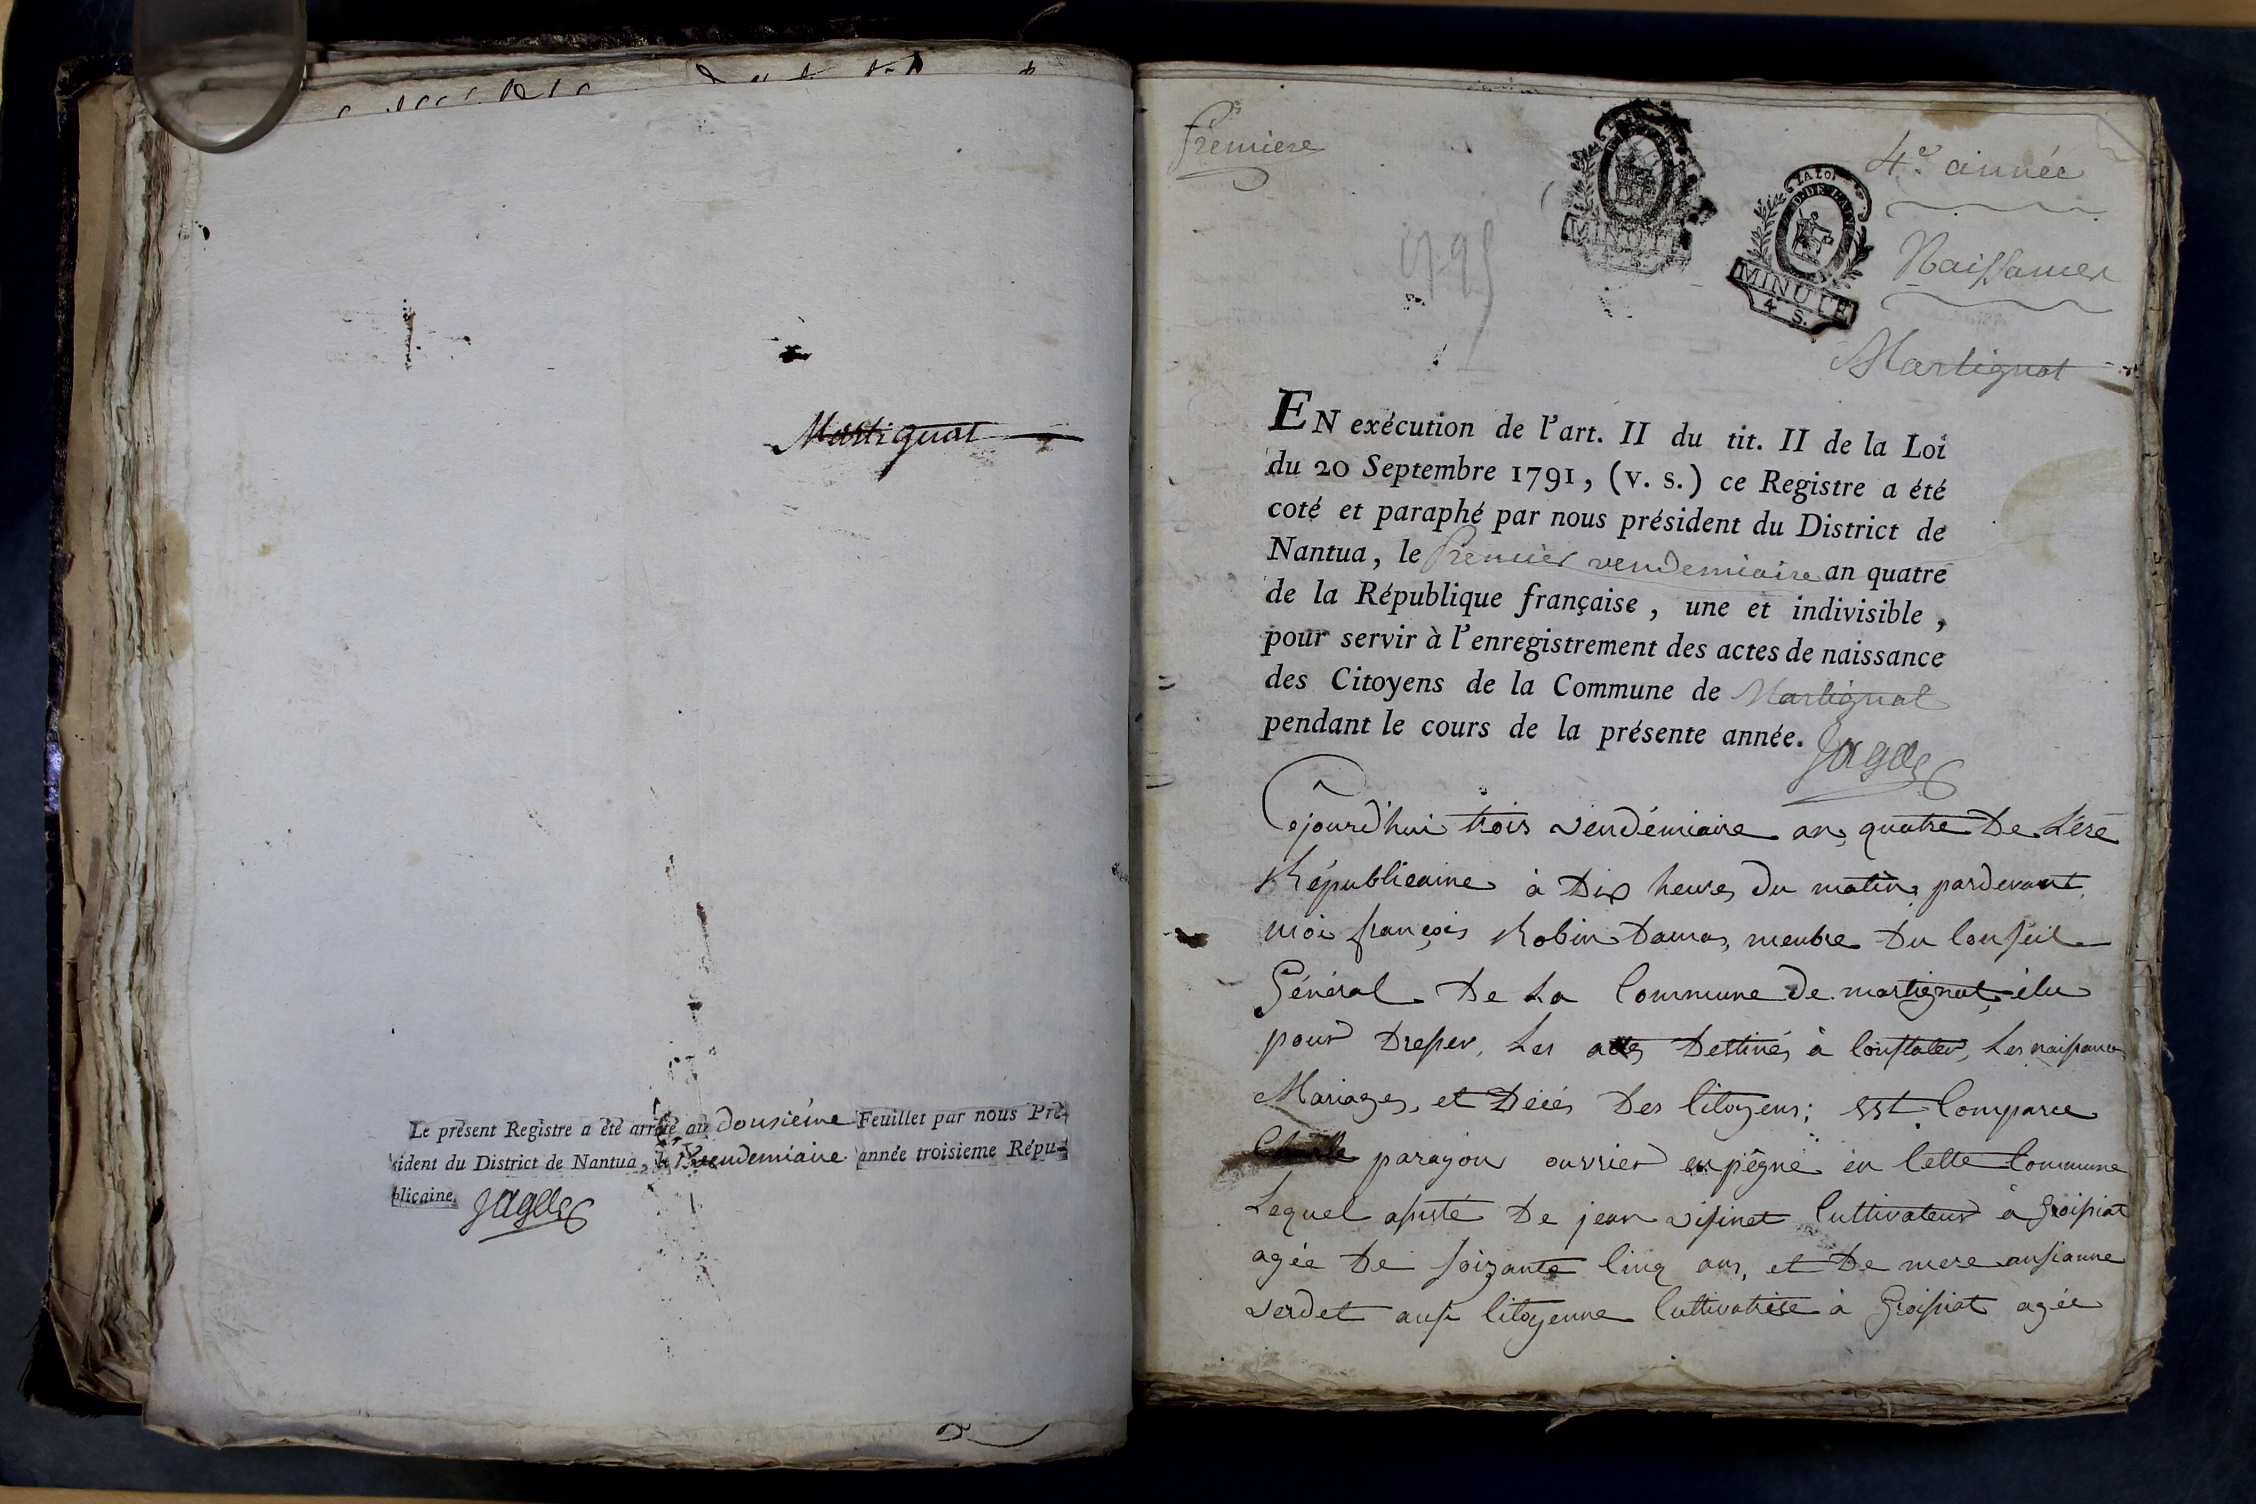 Martignat
Le présent Registre a été arrêté au Donsiéme Feuillet par nous Pré-
sident du District de Nantua, le 1er vendemiaire année troisieme Répu-
blicaine. Jagot
Premiere
4e année
Naissances
Martignat
1795
LA LOI
MINUTE
MINUTE
4 S.
EN exécution de l'art. II du tit. II de la Loi
du 20 Septembre 1791, (v. s.) ce Registre a été
coté et paraphé par nous président du District de
Nantua, le Premier vendemiaire an quatre
de la République française, une et indivisible,
pour servir à l'enregistrement des actes de naissance
des Citoyens de la Commune de Martignat
pendant le cours de la présente année. Jagot
Cejourd'hui trois vendémiaire an quatre De L'ére
Républicaine à Dix heures du matin, pardevant
moi françois Robin Damas, menbre Du Conseil
Général De La Commune de martignat, élu
pour Dresser, Les actes Destinés à Constater, Les naissances
Mariages, et Décés Des Citoyens; Est Comparu
paragon ouvrier en pêgne en Cette Commune
Lequel assisté De jean visinet Cultivateur à Groissiat
agée De soizante Cinq ans, et De mere ansianne
verdet aussi Citoyenne Cultivatrice à Groissiat agée